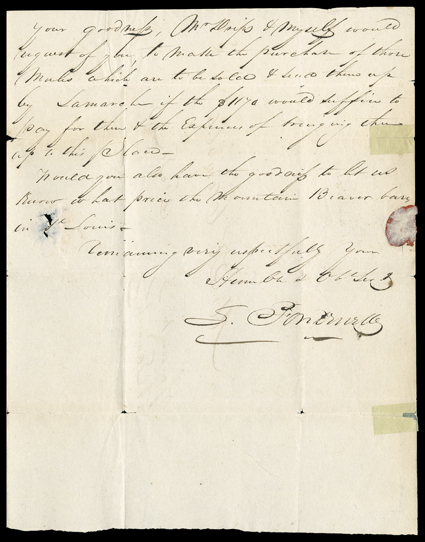 your goodness, Mr Drips & myself would
request of you to make the purchase of those
Mules which are to be sold & send them up
by Lamarche if the $1170 would suffice to
pay for them & the Expences of bringing them
up to this place—
Would you also have the goodness to let us
know what price the Mountain Beaver bare
in St Louis—
Remaining very respectfully your
Humble & Obt Servt
L. Fontenelle